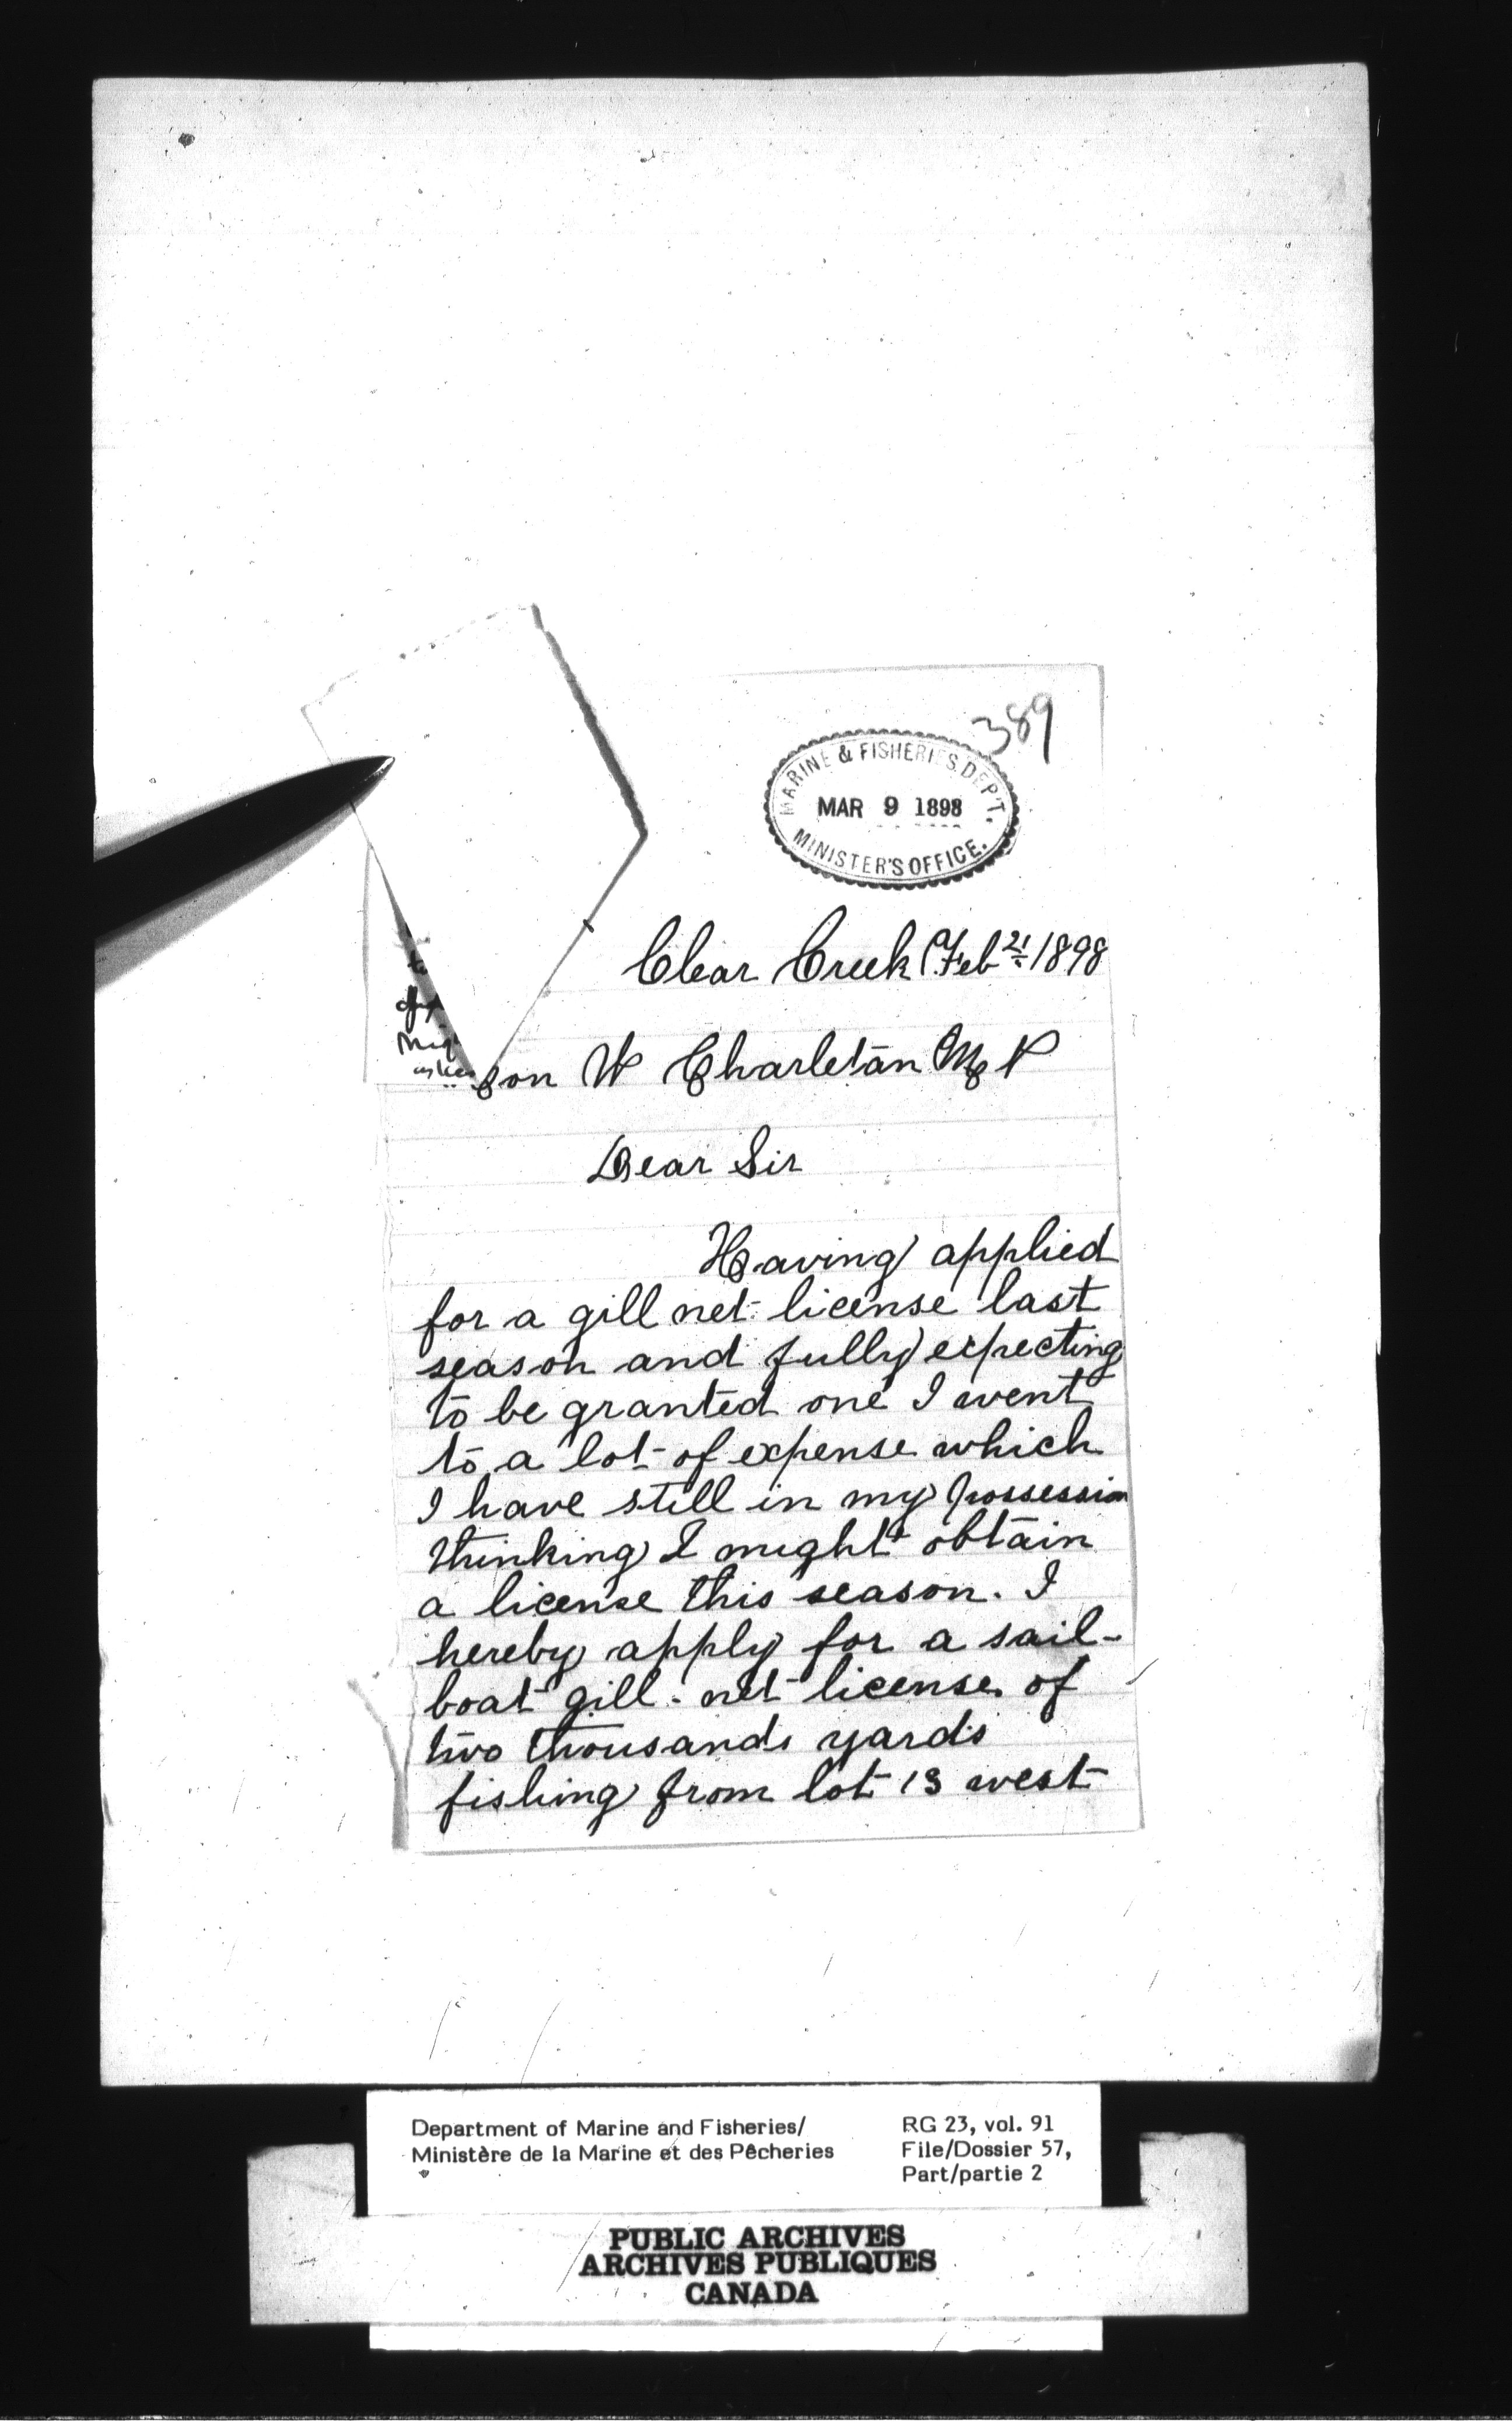 389
MARINE & FISHERIES DEPT.
MAR 9 1898
MINISTER'S OFFICE.
Clear Creek Feb 21 1898
on W Charletan M P
Dear Sir
Having applied
for a gill net license last
season and fully expecting
to be granted one I went
to a lot of expense which
I have still in my possession
thinking I might obtain
a license this season. I
hereby apply for a sail-
boat gill-net license of
two thousands yards
fishing from lot 13 west
Department of Marine and Fisheries/
Ministère de la Marine et des Pêcheries
RG 23, vol. 91
File/Dossier 57,
Part/partie 2
PUBLIC ARCHIVES
ARCHIVES PUBLIQUES
CANADA